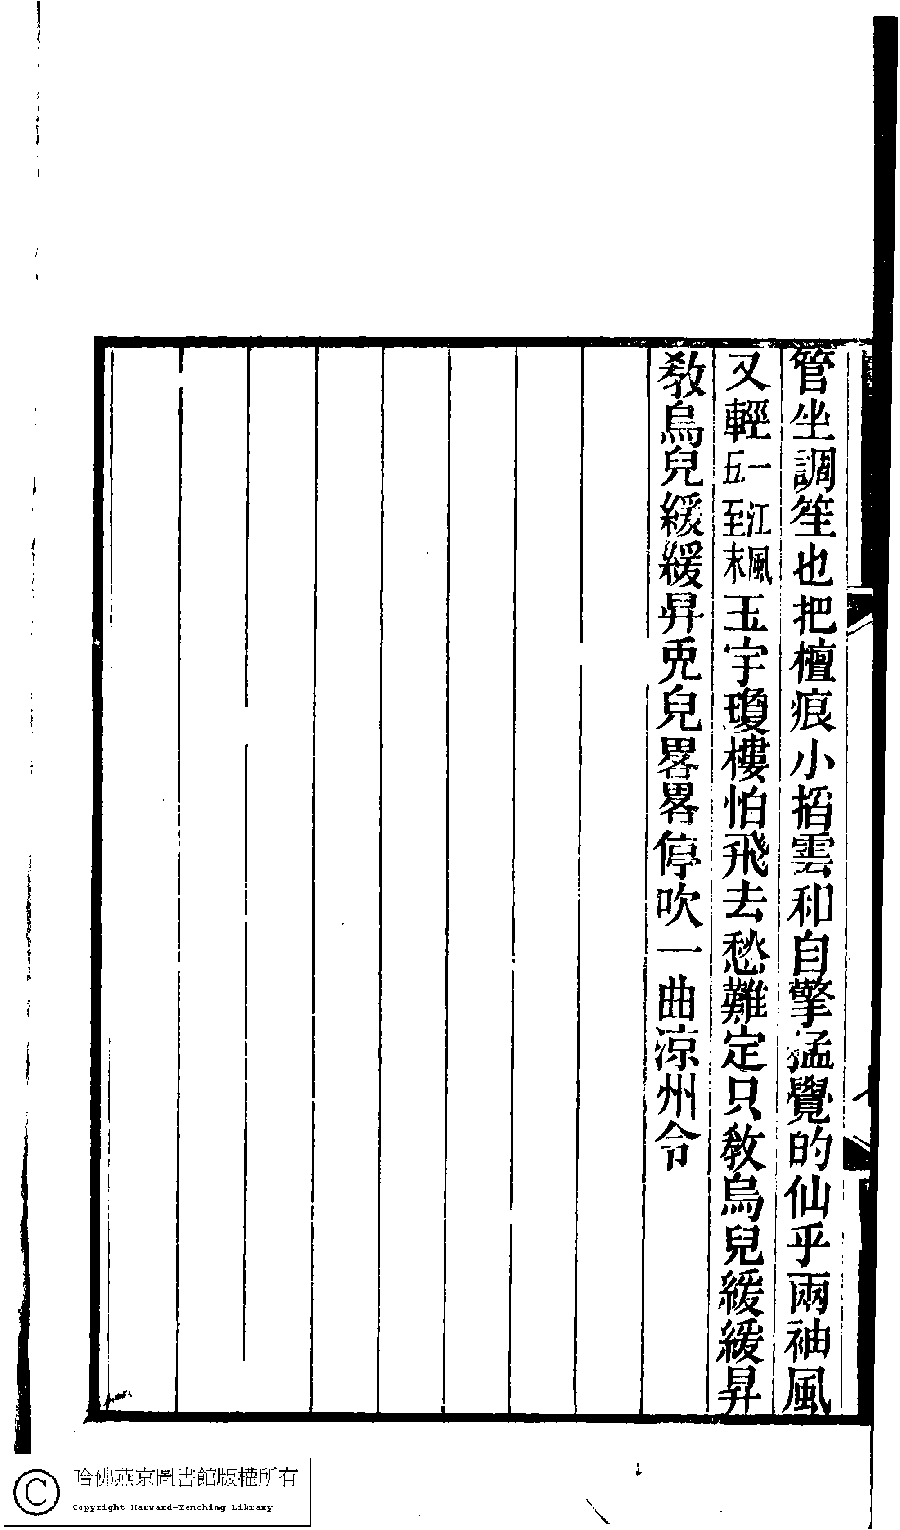 管坐調笙也把檀痕小搯雲和自擎猛覺的仙乎兩袖風
又輕一江風五至末玉宇瓊樓怕飛去愁難定只敎烏兒緩緩昇
敎烏兒緩緩昇兎兒畧畧停吹一曲涼州令
哈佛燕京圖書館版權所有
Copyright Harvard-Yenching Library